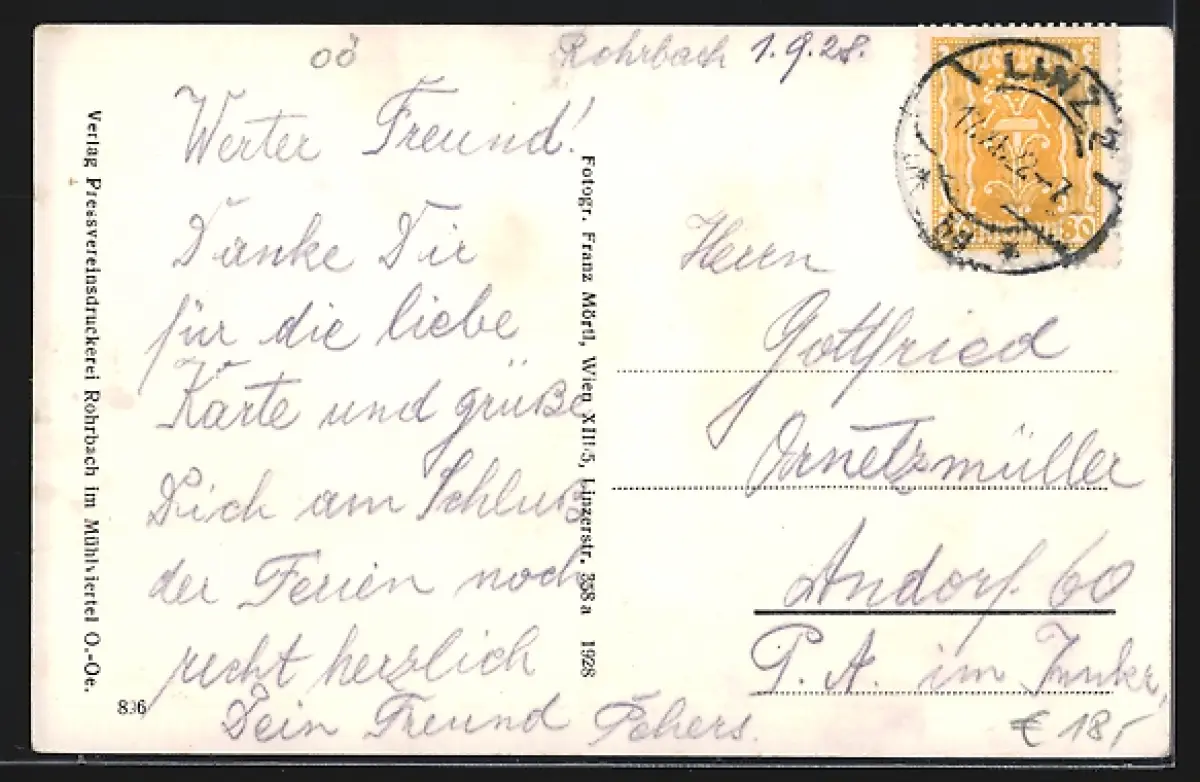 OÖ
Rohrbach 1.9.28.
Werter Freund!
Danke Dir
für die liebe
Karte und grüße
Dich am Schluß
der Ferien noch
recht herzlich
Dein Freund
Verlag Pressvereinsdruckerei Rohrbach im Mühlviertel O.-Oe.
836
Fotogr. Franz Mörtl, Wien XIII/5, Linzerstr. 358a 1928
LINZ 2
30
Herrn
Gottfried
Ornetzmüller
Andorf 60
P. A. im Innkr.
€ 18,-